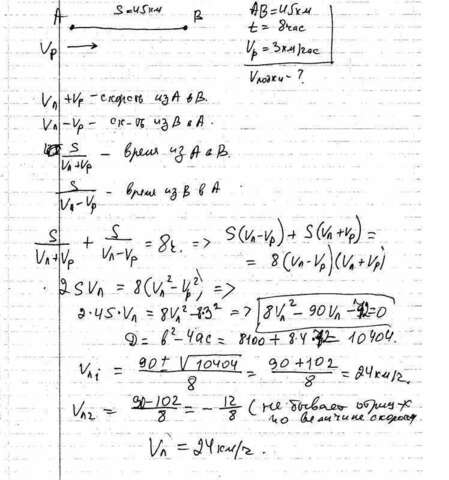 A S=45км B
Vр →
AB=45км
t = 8час
Vр = 3км/час
Vлодки - ?
Vл+Vр - скорость из A в B.
Vл-Vр - ск-ть из B в A.
S/(Vл+Vр) - время из A в B.
S/(Vл-Vр) - время из B в A
S/(Vл+Vр) + S/(Vл-Vр) = 8ч. => S(Vл-Vр) + S(Vл+Vр) =
= 8(Vл-Vр)(Vл+Vр)
2SVл = 8(Vл²-Vр²) =>
2·45·Vл = 8Vл²-8·3² => 8Vл² - 90Vл - 72=0
D = b²-4ac = 8100 + 8·4·72 = 10404.
Vл1 = (90±√10404)/8 = (90+102)/8 = 24км/ч.
Vл2 = (90-102)/8 = -12/8 (не бывает отриц-х
по величине скорост
Vл = 24км/ч.